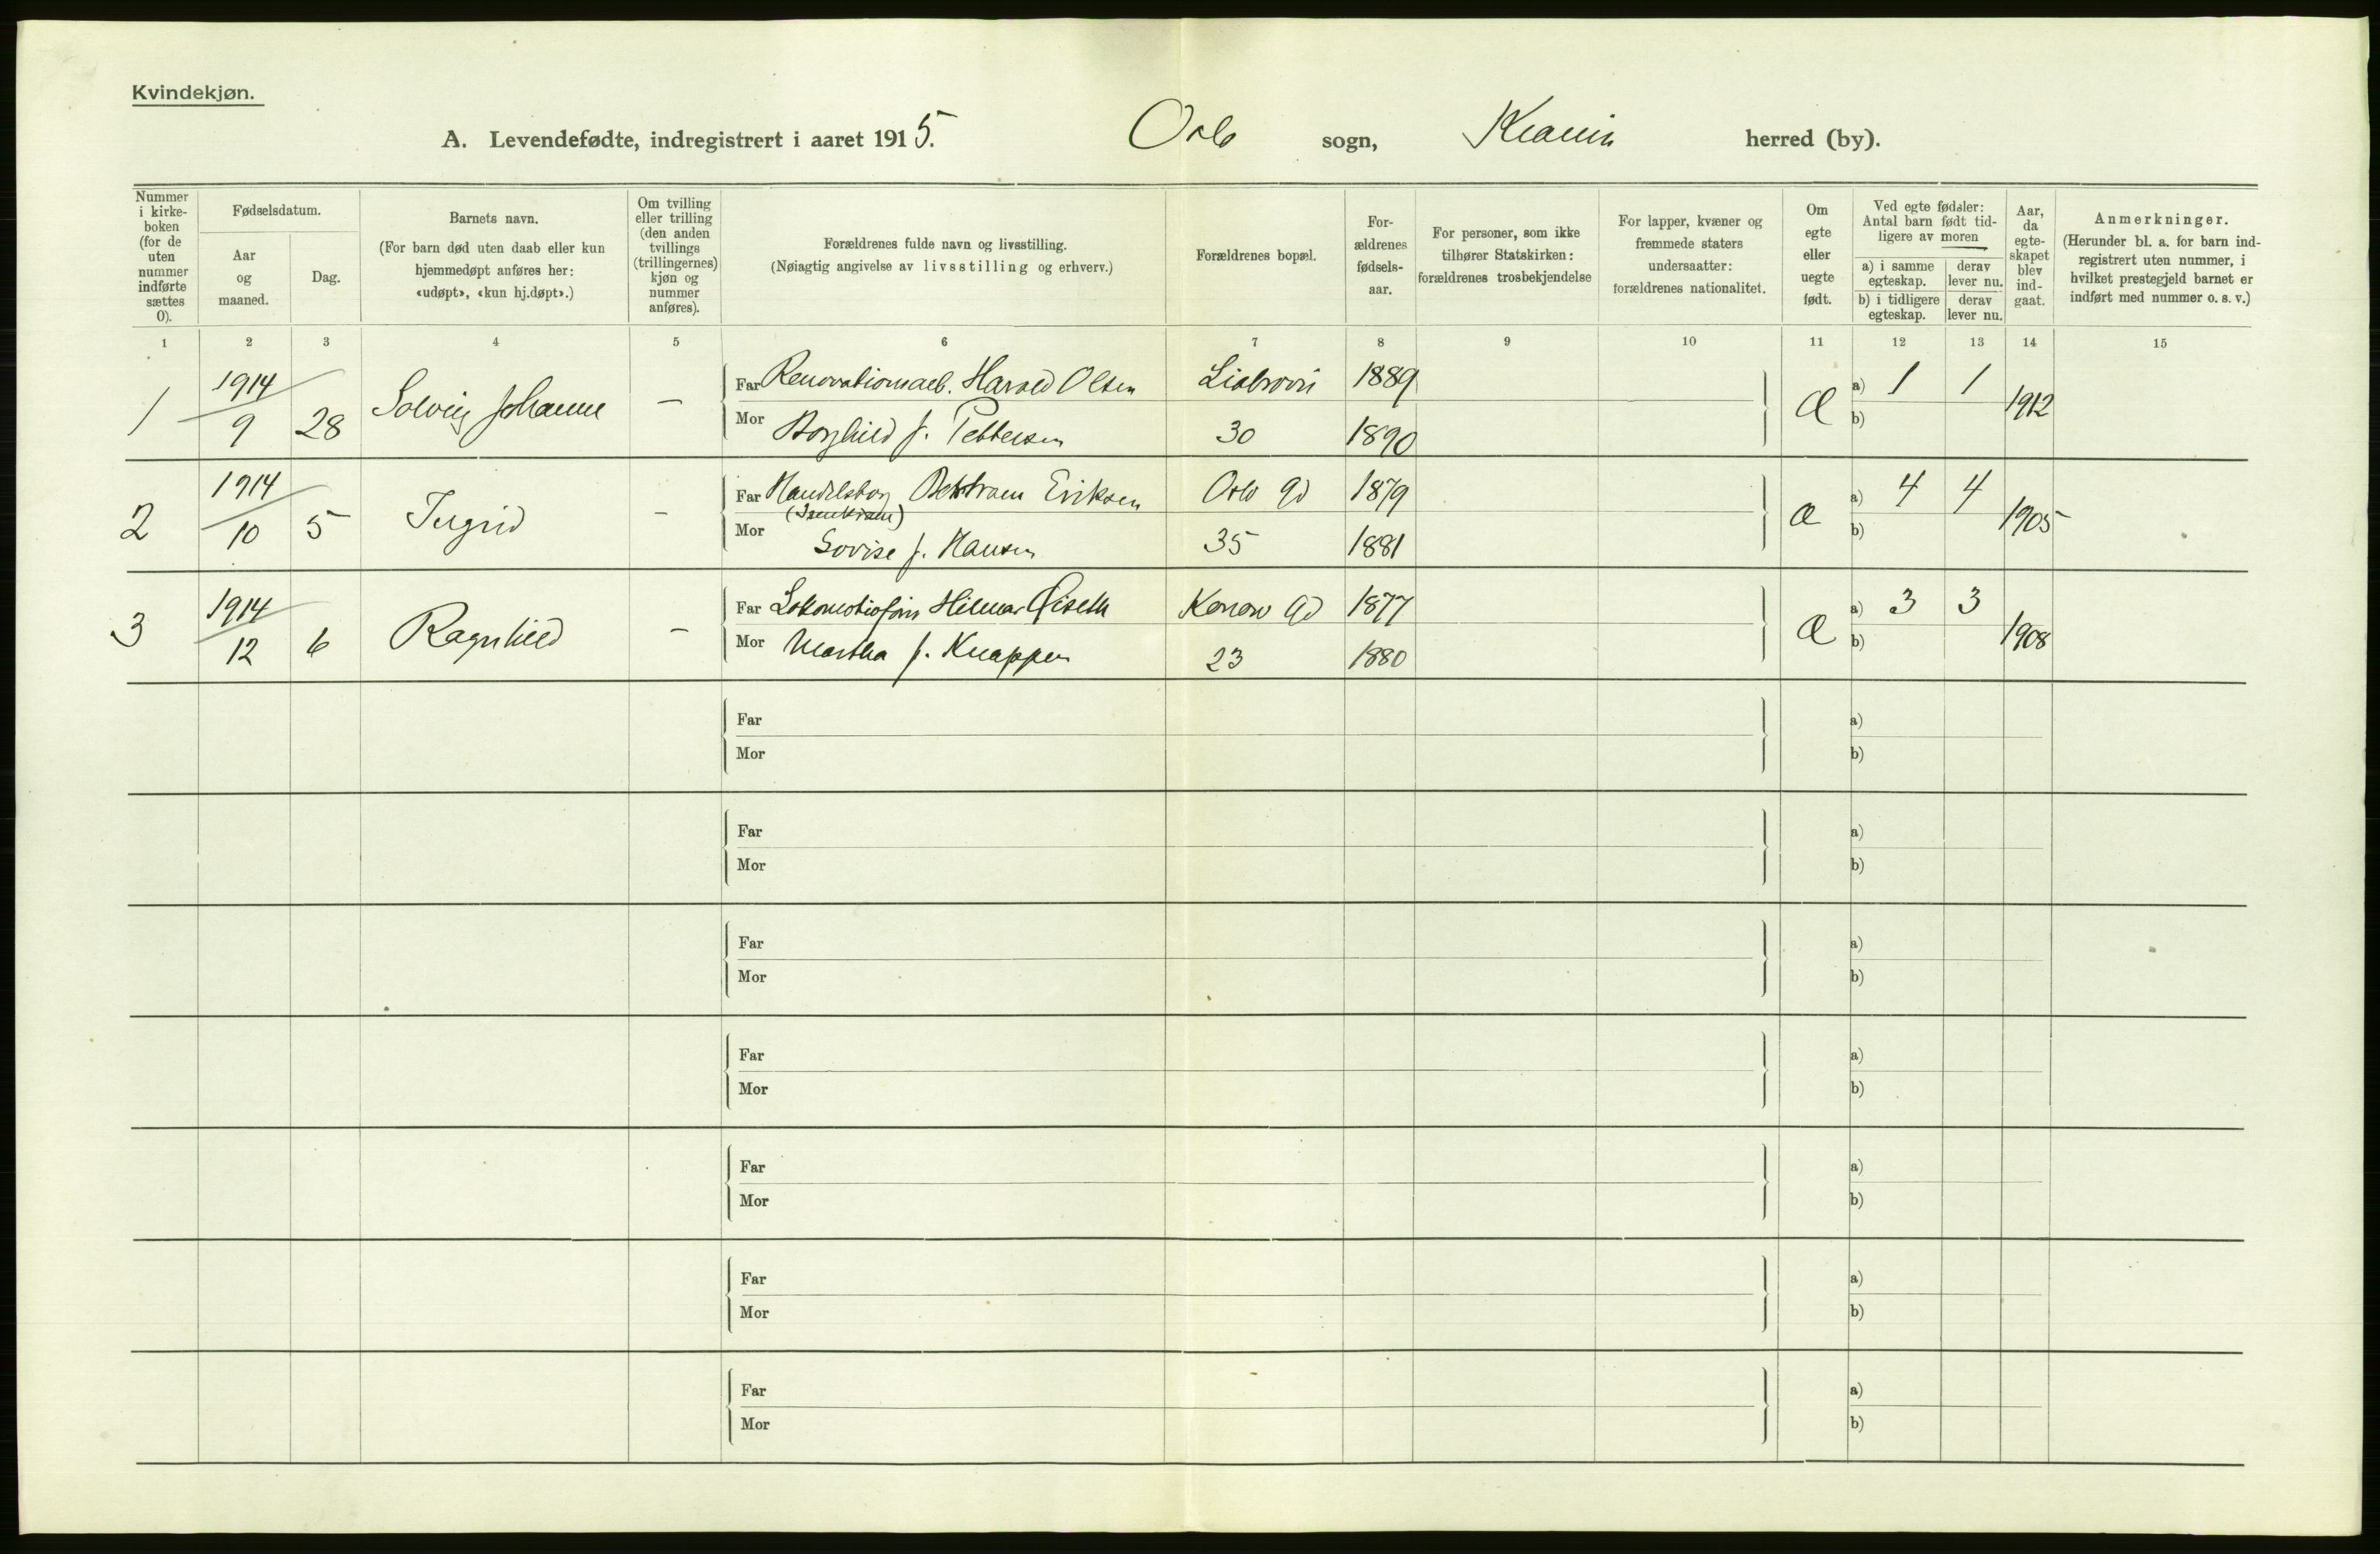 Kvindekjøn.
A. Levendefødte, indregistrert i aaret 1915. Oslo sogn, Krania herred (by).
Nummer i kirke-boken (for de uten nummer indførte sættes 0).
Fødselsdatum.
Aar og maaned.
Dag.
Barnets navn.
(For barn død uten daab eller kun hjemmedøpt anføres her: «udøpt», «kun hj.døpt».)
Om tvilling eller trilling (den anden tvillings (trillingernes) kjøn og nummer anføres).
Forældrenes fulde navn og livsstilling.
(Nøiagtig angivelse av livsstilling og erhverv.)
Forældrenes bopæl.
For-ældrenes fødsels-aar.
For personer, som ikke tilhører Statskirken: forældrenes trosbekjendelse
For lapper, kvæner og fremmede staters undersaatter: forældrenes nationalitet.
Om egte eller uegte født.
Ved egte fødsler: Antal barn født tid-ligere av moren
a) i samme egteskap. derav lever nu.
b) i tidligere egteskap. derav lever nu.
Aar, da egte-skapet blev ind-gaat.
Anmerkninger.
(Herunder bl. a. for barn ind-registrert uten nummer, i hvilket prestegjeld barnet er indført med nummer o. s. v.)
1 2 3 4 5 6 7 8 9 10 11 12 13 14 15
1 1914/9 28 Solveig Johanne — Far Renovationsarb. Harald Olsen Liabrovei 1889 Æ a) 1 1 1912
Mor Borghild f. Pettersen 30 1890 b)
2 1914/10 5 Ingrid - Far Handelsborg Eriksen Oslo Gd 1879 Æ a) 4 4 1905
Mor Lovise f. Hansen 35 1881 b)
3 1914/12 6 Ragnhild - Far Hilmar Konow Gd 1877 Æ a) 3 3 1908
Mor Martha f. Knappen 23 1880 b)
Far a)
Mor b)
Far a)
Mor b)
Far a)
Mor b)
Far a)
Mor b)
Far a)
Mor b)
Far a)
Mor b)
Far a)
Mor b)